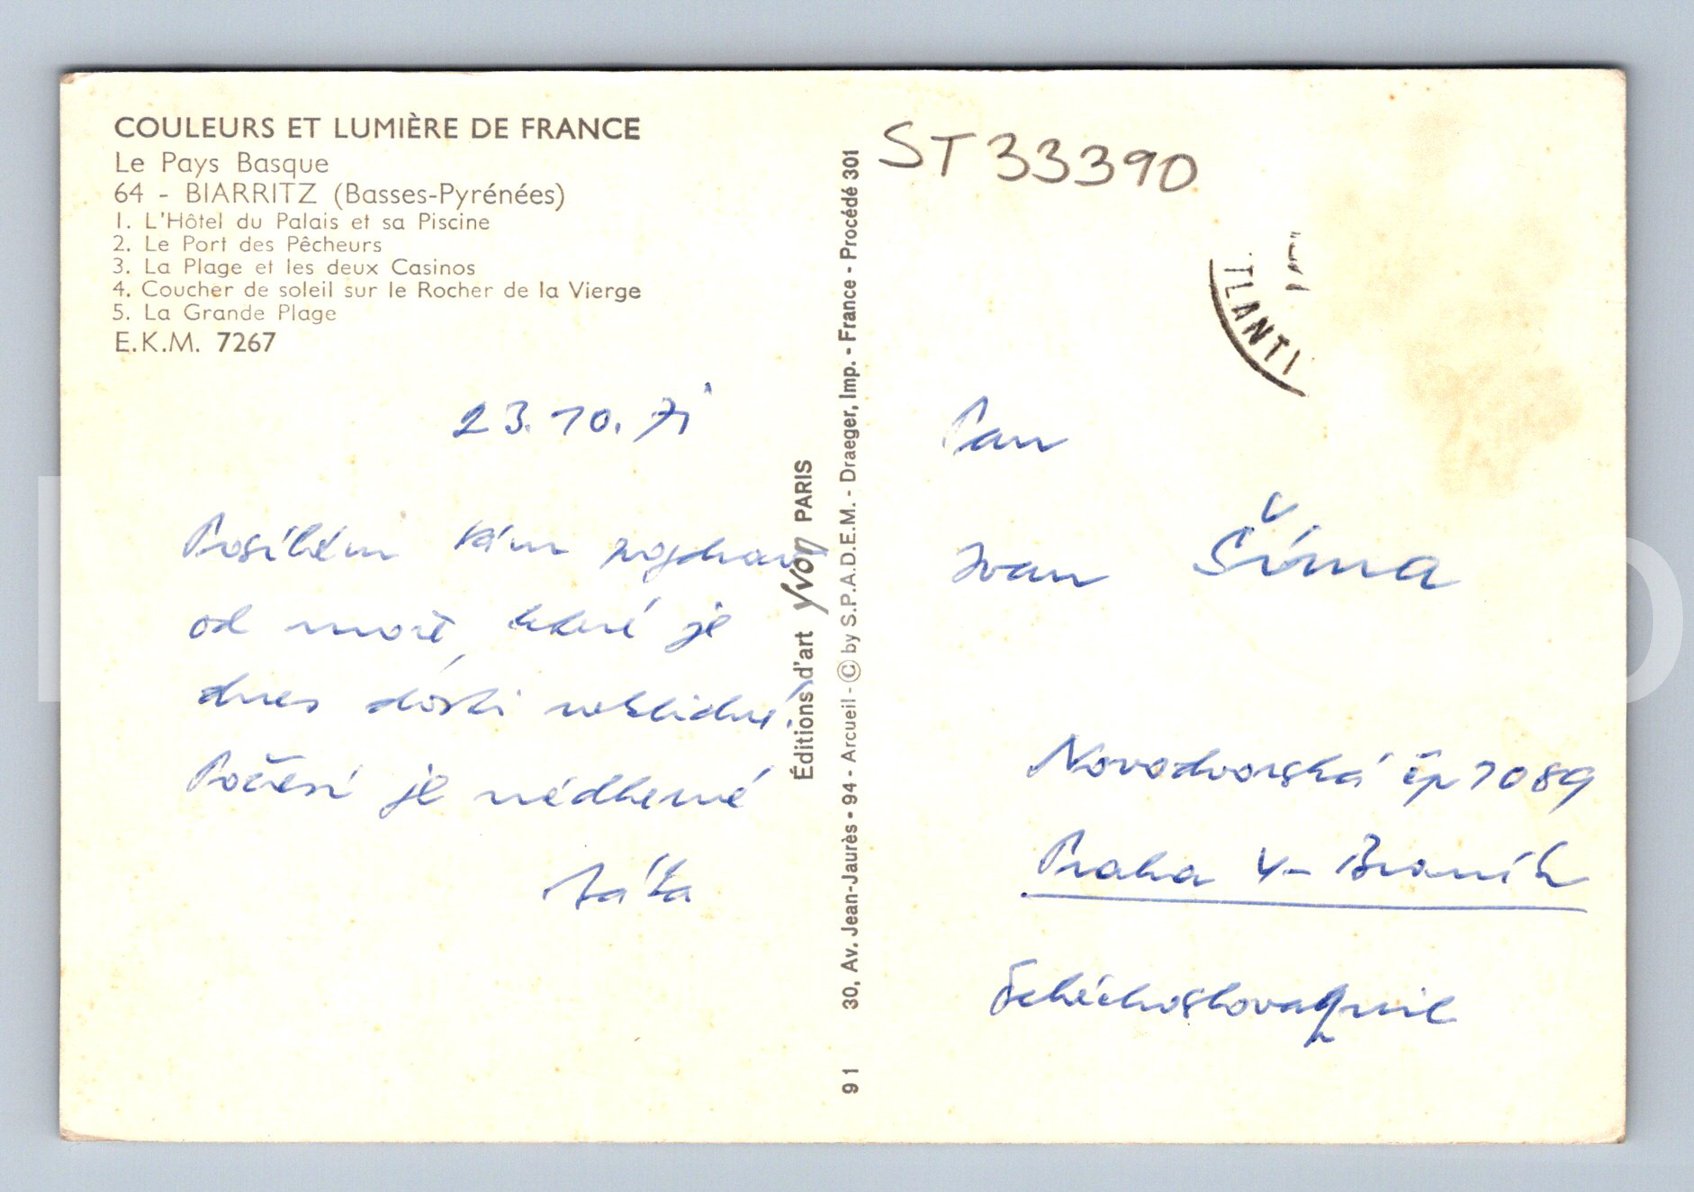 COULEURS ET LUMIÈRE DE FRANCE
Le Pays Basque
64 - BIARRITZ (Basses-Pyrénées)
1. L'Hôtel du Palais et sa Piscine
2. Le Port des Pêcheurs
3. La Plage et les deux Casinos
4. Coucher de soleil sur le Rocher de la Vierge
5. La Grande Plage
E.K.M. 7267
23.10.71
Posílám Vám pozdrav
od moře, které je
dnes dosti neklidné.
Počasí je nádherné
Éditions d'art Yvon PARIS
91 30, Av. Jean-Jaurès • 94 - Arcueil - © by S.P.A.D.E.M. - Draeger, Imp. - France - Procédé 301
ST 33390
TLANTI
Pan
Ivan Šíma
Novodvorská čp 1089
Praha 4 - Braník
Tchéchoslovaquie